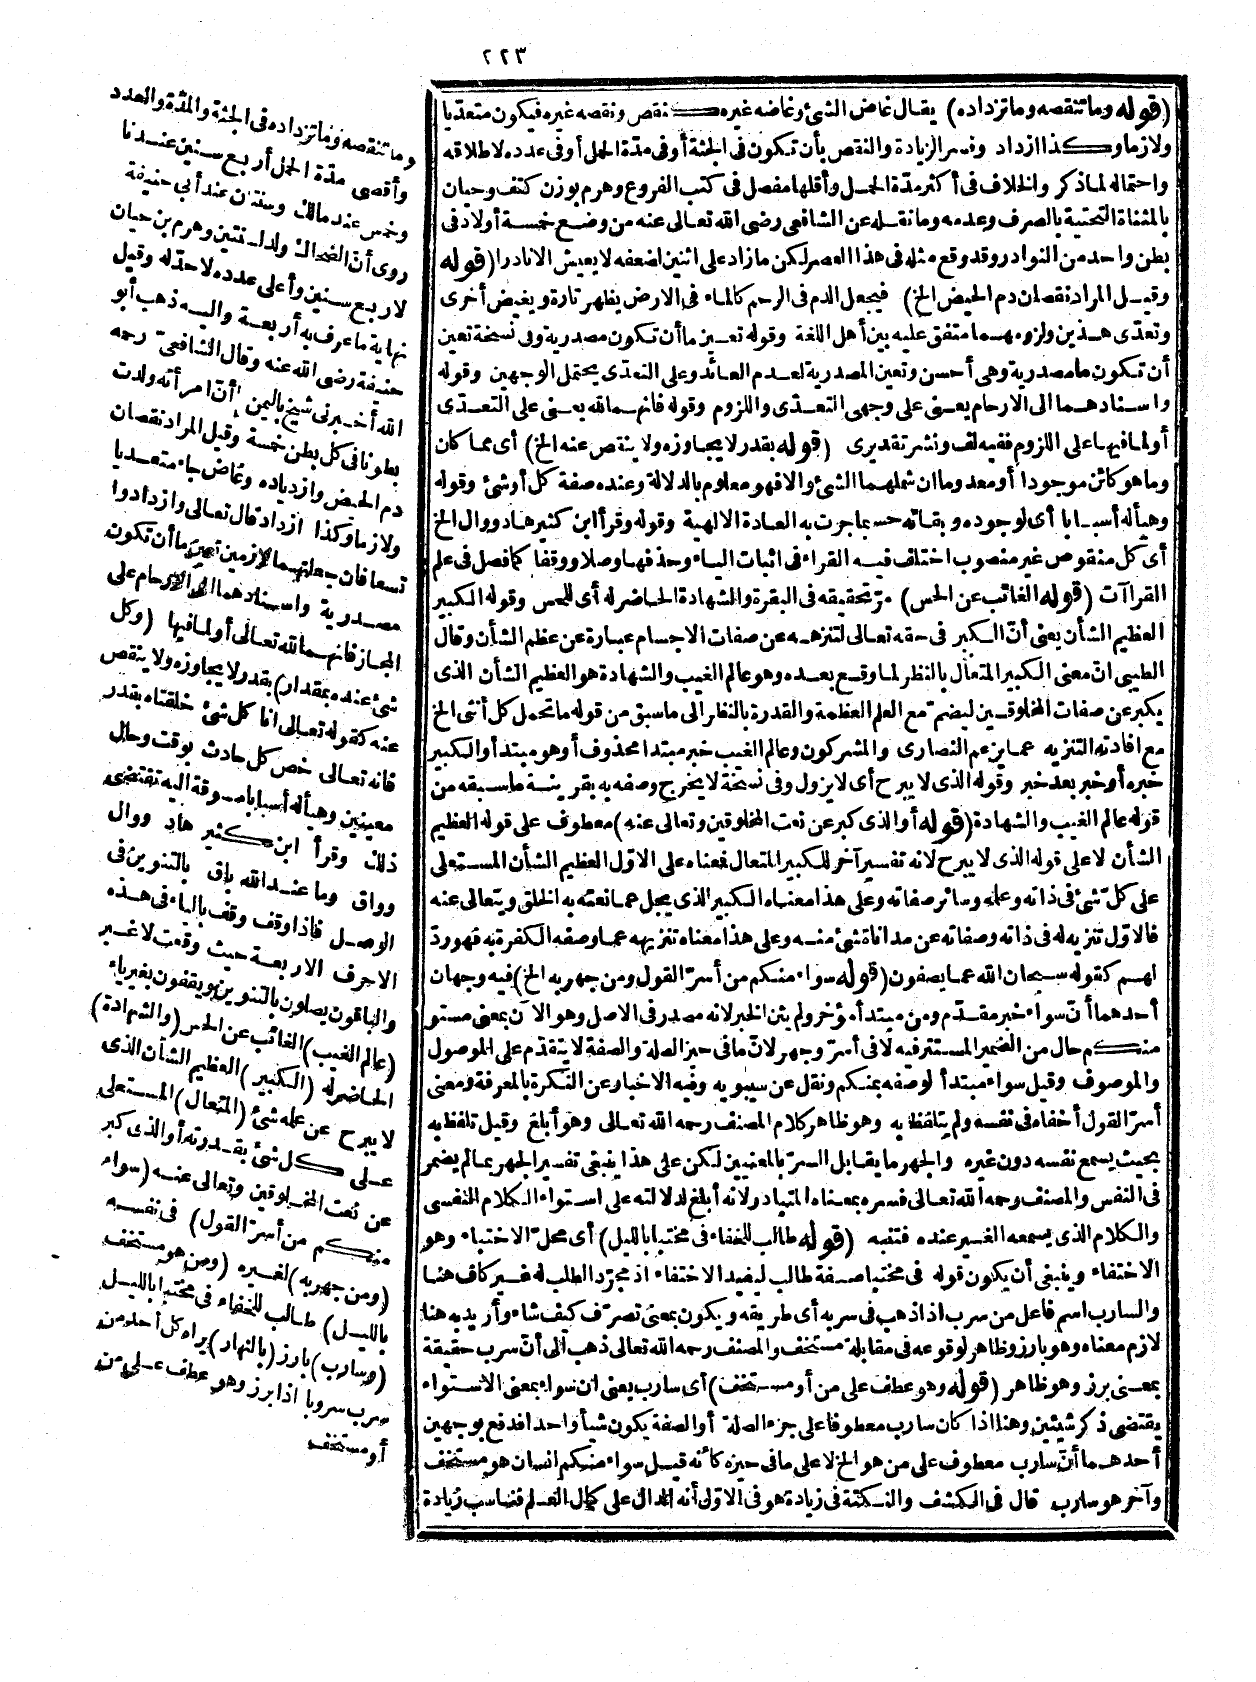 ٢٢٣
(قوله وما تنقصه وما تزداده) يقال غاض الشئ وغاضه غيره كنقص ونقصه غيره فيكون متعديا
ولازما وكذا ازداد وفسر الزيادة والنقص بأن تكون فى الجثة أو فى مدة الحمل أو فى عدده لاطلاقه
واحتماله لما ذكر والخلاف فى أكثر مدة الحمل وأقلها مفصل فى كتب الفروع وهرم بوزن كتف وحيان
بالمثناة التحتية بالصرف وعدمه وما نقله عن الشافعى رضى الله تعالى عنه من وضع خمسة أولاد فى
بطن واحد من النوادر وقد وقع مثله فى هذا العصر لكن ما زاد على اثنين لضعفه لا يعيش الا نادرا (قوله
وقيل المراد نقصان دم الحيض الخ) فيجعل الدم فى الرحم كالماء فى الارض يظهر تارة ويغيض أخرى
وتعدى هذين ولزومهما متفق عليه بين أهل اللغة وقوله تعين ما أن تكون مصدرية وفى نسخة تعين
أن تكون ما مصدرية وهى أحسن وتعين المصدرية لعدم العائد وعلى التعدى يحتمل الوجهين وقوله
واسنادهما الى الارحام يعنى على وجهى التعدى واللزوم وقوله فانهما لله يعنى على التعدى
أو لما فيها على اللزوم ففيه لف ونشر تقديرى (قوله بقدر لا يجاوزه ولا ينقص عنه الخ) أى مما كان
وما هو كائن موجودا أو معدوما ان شملهما الشئ والا فهو معلوم بالدلالة وعنده صفة كل أو شئ وقوله
وهيأ له أسبابا أى لوجوده وبقائه حسبما جرت به العادة الالهية وقوله وقرأ ابن كثير هاد ووال الخ
أى كل منقوص غير منصوب اختلف فيه القراء فى اثبات الياء وحذفها وصلا ووقفا كما فصل فى علم
القراآت (قوله الغائب عن الحس) مر تحقيقه فى البقرة والشهادة الحاضر له أى للحس وقوله الكبير
العظيم الشأن يعنى أن الكبر فى حقه تعالى لتنزهه عن صفات الاجسام عبارة عن عظم الشأن وقال
الطيبى ان معنى الكبير المتعال بالنظر لما وقع بعده وهو عالم الغيب والشهادة هو العظيم الشأن الذى
يكبر عن صفات المخلوقين ليضم مع العلم العظمة والقدرة بالنظر الى ما سبق من قوله ما تحمل كل أنثى الخ
مع افادته التنزيه عما يزعم النصارى والمشركون وعالم الغيب خبر مبتدا محذوف أو هو مبتدأ والكبير
خبره أو خبر بعد خبر وقوله الذى لا يبرح أى لا يزول وفى نسخة لا يخرج وصفه به بقرينة ما سبقه من
قوله عالم الغيب والشهادة (قوله أو الذى كبر عن نعت المخلوقين وتعالى عنه) معطوف على قوله العظيم
الشأن لا على قوله الذى لا يبرح لانه تفسير آخر للكبير المتعال فمعناه على الاول العظيم الشأن المستعلى
على كل شئ فى ذاته وعلمه وسائر صفاته وعلى هذا معناه الكبير الذى يجل عما نعته به الخلق ويتعالى عنه
فالاول تنزيه له فى ذاته وصفاته عن مداناة شئ منه وعلى هذا معناه تنزيهه عما وصفه الكفرة به فهو رد
لهم كقوله سبحان الله عما يصفون (قوله سواء منكم من أسر القول ومن جهر به الخ) فيه وجهان
أحدهما أن سواء خبر مقدم ومن مبتدأ مؤخر ولم يثن الخبر لانه مصدر فى الاصل وهو الآن بمعنى مستو
منكم حال من الضمير المستتر فيه لا فى أسر وجهر لان ما فى حيز الصلة والصفة لا يتقدم على الموصول
والموصوف وقيل سواء مبتدأ لوصفه بمنكم ونقل عن سيبويه وفيه الاخبار عن النكرة بالمعرفة ومعنى
أسر القول أخفاه فى نفسه ولم يتلفظ به وهو ظاهر كلام المصنف رحمه الله تعالى وهو أبلغ وقيل تلفظ به
بحيث يسمع نفسه دون غيره والجهر ما يقابل السر بالمعنيين لكن على هذا ينبغى تفسير الجهر بما لم يضمر
فى النفس والمصنف رحمه الله تعالى فسره بمعناه المتبادر ولانه أبلغ لدلالته على استواء الكلام النفسى
والكلام الذى يسمعه الغير عنده فتنبه (قوله طالب للخفاء فى مختبا بالليل) أى محل الاختباء وهو
الاختفاء وينبغى أن يكون قوله فى مختبا صفة طالب ليفيد الاختفاء اذ مجرد الطلب له غير كاف هنا
والسارب اسم فاعل من سرب اذا ذهب فى سربه أى طريقه ويكون بمعنى تصرف كيف شاء وأريد به هنا
لازم معناه وهو بارز وظاهر لوقوعه فى مقابلة مستخف والمصنف رحمه الله تعالى ذهب الى أن سرب حقيقة
بمعنى برز وهو ظاهر (قوله وهو عطف على من أو مستخف) أى سارب يعنى ان سواء بمعنى الاستواء
يقتضى ذكر شيئين وهنا اذا كان سارب معطوفا على جزء الصلة أو الصفة يكون شيأ واحدا فدفع بوجهين
أحدهما أن سارب معطوف على من هو الخ لا على ما فى حيزه كأنه قيل سواء منكم انسان هو مستخف
وآخر هو سارب قال فى الكشف والنكتة فى زيادة هو فى الاول أنه الدال على كمال العلم فناسب زيادة
وما تنقصه وما تزداده فى الجثة والمدة والعدد
وأقصى مدة الحمل أربع سنين عندنا
وخمس عند مالك وسنتان عند أبى حنيفة
روى أن الضحاك ولد لسنتين وهرم بن حيان
لاربع سنين وأعلى عدده لا حد له وقيل
نهاية ما عرف به أربعة واليه ذهب أبو
حنيفة رضى الله عنه وقال الشافعى رحمه
الله أخبرنى شيخ باليمن أن امرأته ولدت
بطونا فى كل بطن خمسة وقيل المراد نقصان
دم الحيض وازدياده وغاض جاء متعديا
ولازما وكذا ازداد قال تعالى وازدادوا
تسعا فان جعلتهما لازمين تعين ما أن تكون
مصدرية واسنادهما الى الارحام على
المجاز فانهما لله تعالى أو لما فيها (وكل
شئ عنده بمقدار) بقدر لا يجاوزه ولا ينقص
عنه كقوله تعالى انا كل شئ خلقناه بقدر
فانه تعالى خص كل حادث بوقت وحال
معينين وهيأ له أسبابا مسوقة اليه تقتضى
ذلك وقرأ ابن كثير هاد ووال
وواق وما عند الله باق بالتنوين فى
الوصل فاذا وقف وقف بالياء فى هذه
الاحرف الاربعة حيث وقعت لا غير
والباقون يصلون بالتنوين ويقفون بغير ياء
(عالم الغيب) الغائب عن الحس (والشهادة)
الحاضر له (الكبير) العظيم الشأن الذى
لا يبرح عن علمه شئ (المتعال) المستعلى
على كل شئ بقدرته أو الذى كبر
عن نعت المخلوقين وتعالى عنه (سواء
منكم من أسر القول) فى نفسه
(ومن جهر به) لغيره (ومن هو مستخف
بالليل) طالب للخفاء فى مختبا بالليل
(وسارب) بارز (بالنهار) يراه كل أحد من
سرب سروبا اذا برز وهو عطف على من
أو مستخف